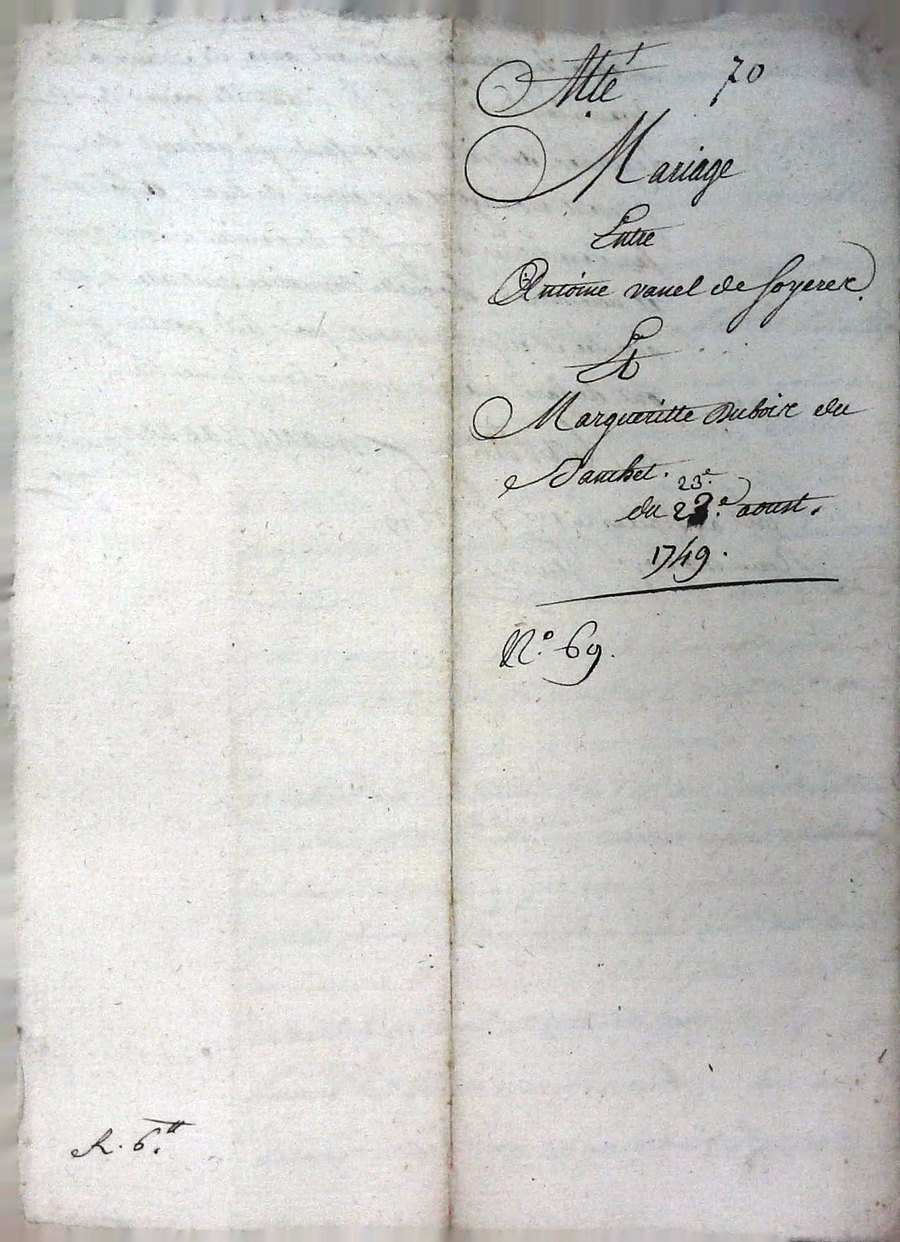 Mté 70
Mariage
Entre
Antoine vanel de soyerex
Et
Margueritte Duboix du
Sauchet.
23e.
du 23e. aoust.
1749.
N.o 69.
R. 6.tt